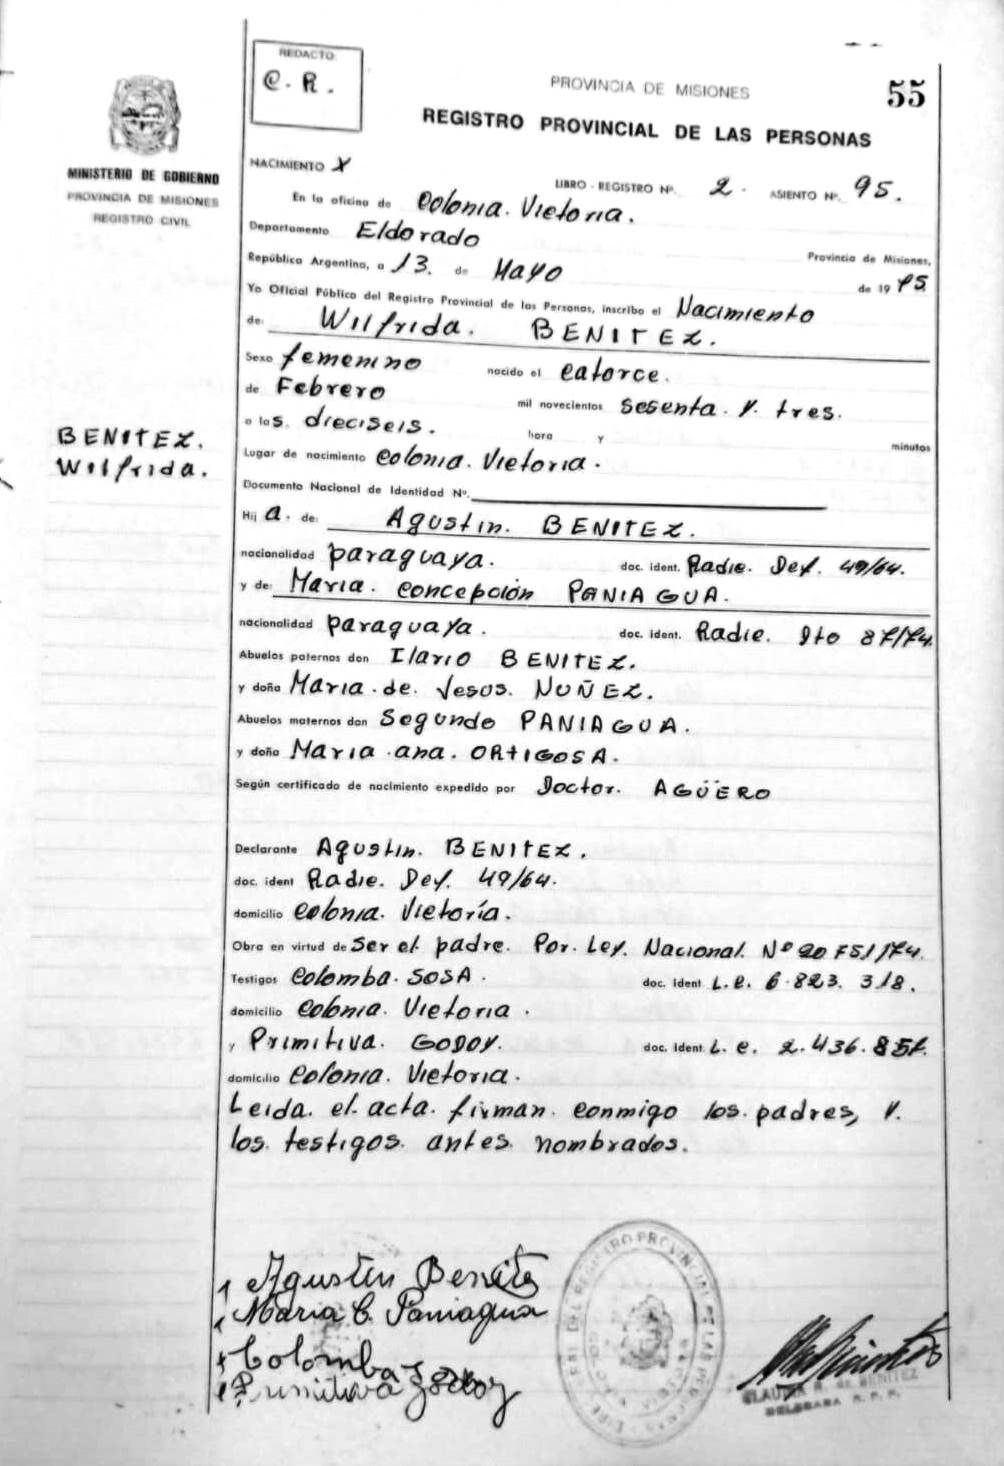 REDACTO
C. R.
PROVINCIA DE MISIONES
55
REGISTRO PROVINCIAL DE LAS PERSONAS
MINISTERIO DE GOBIERNO
PROVINCIA DE MISIONES
REGISTRO CIVIL
NACIMIENTO X
LIBRO - REGISTRO Nº 2. ASIENTO Nº. 95.
En la oficina de Colonia. Victoria.
Departamento Eldorado
Provincia de Misiones,
República Argentina, a 13. de Mayo de 19 75
Yo Oficial Público del Registro Provincial de las Personas, inscribo el Nacimiento
de: Wilfrida. BENITEZ.
Sexo femenino nacido el catorce.
de Febrero mil novecientos sesenta. y. tres.
a las. dieciseis. hora y minutos
BENITEZ.
Wilfrida.
Lugar de nacimiento Colonia. Victoria.
Documento Nacional de Identidad Nº.
Hij a. de: Agustin. BENITEZ.
nacionalidad paraguaya. doc. ident. Radic. Def. 49/64.
y de: Maria. Concepción PANIAGUA.
nacionalidad paraguaya. doc. ident. Radic. Dto 87/74.
Abuelos paternos don Ilario BENITEZ.
y doña Maria. de. Jesus. NUÑEZ.
Abuelos maternos don Segundo PANIAGUA.
y doña Maria. ana. ORTIGOSA.
Según certificado de nacimiento expedido por Doctor. AGÜERO
Declarante Agustin. BENITEZ.
doc. ident Radic. Def. 49/64.
domicilio Colonia. Victoría.
Obra en virtud de Ser el padre. Por. Ley. Nacional. Nº 20 751/74.
Testigos Colomba. SOSA. doc. ident L. e. 6.823. 318.
domicilio Colonia. Victoria.
y Primitiva. GODOY. doc. ident. L. e. 2.436.857.
domicilio Colonia. Victoria.
Leida. el. acta. firman. conmigo los. padres, y.
los. testigos. antes. nombrados.
Agustin Benitez
Maria C. Paniagua
Colomba
Primitiva Godoy
DEL REGISTRO PROVINCIAL DE LAS PERSONAS
CLAUDIA R. de BENITEZ
DELEGADA R. P. P.